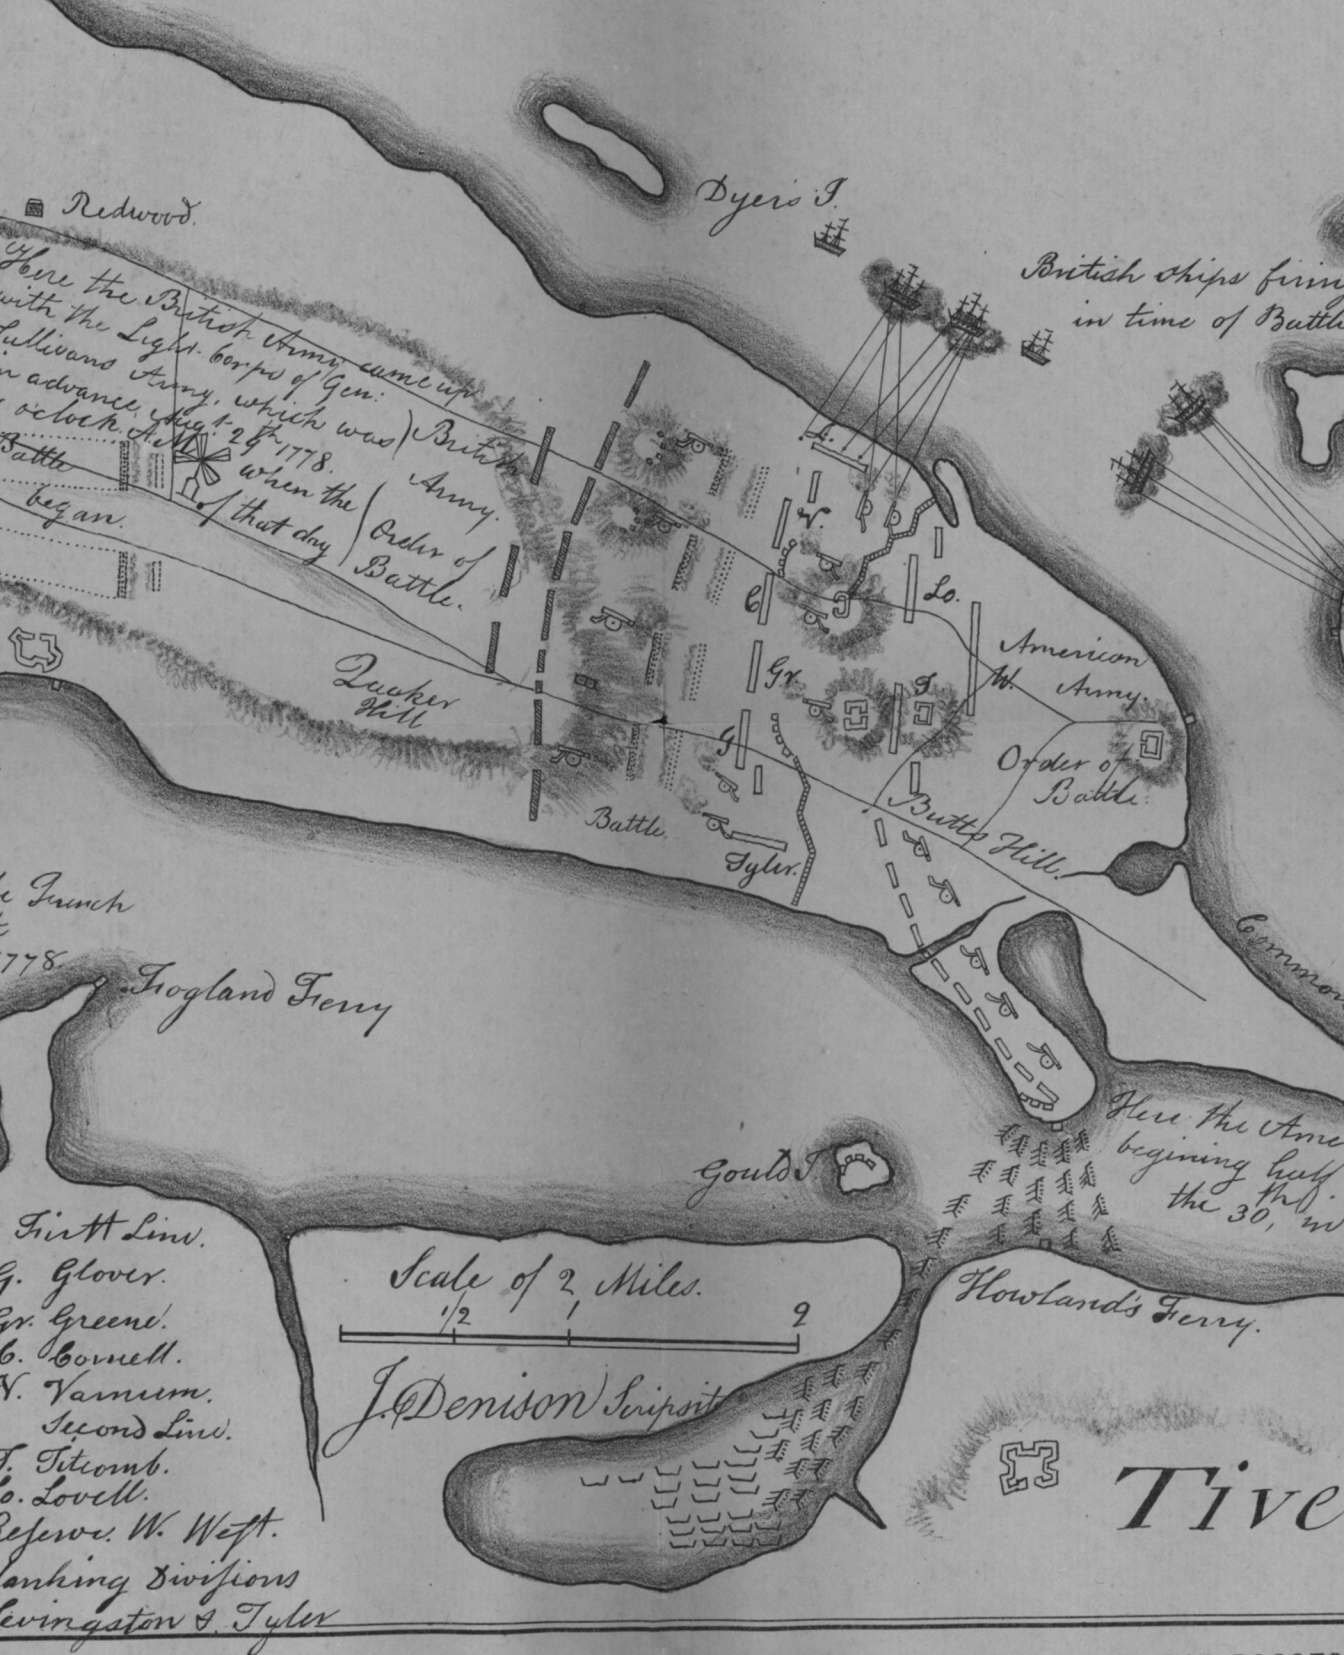 Redwood.
Dyer's I.
British ships firin
in time of Battle
Here the British Army came up
with the Light Corps of Gen:
Sullivans Army, which was
in advance, Aug.t 29th 1778.
o'clock A.M. when the
Battle
began. of that day
British
Army.
Order of
Battle.
L.
V.
C
Lo.
Gr
T
W.
G
American
Army.
Order of
Battle.
Quaker
Hill
Battle.
Tyler.
Butts Hill.
French
1778.
Fogland Ferry
Common
Here the Ame
begining half
the 30th, in
Gould I.
Howland's Ferry.
First Line.
G. Glover.
Gr. Greene.
C. Cornell.
V. Varnum.
Second Line.
T. Titcomb.
Lo. Lovell.
Reserve. W. West.
anking Divisions
Levingston &. Tyler
Scale of 2 Miles.
1/2 1 2
J. Denison Scripsit
Tive